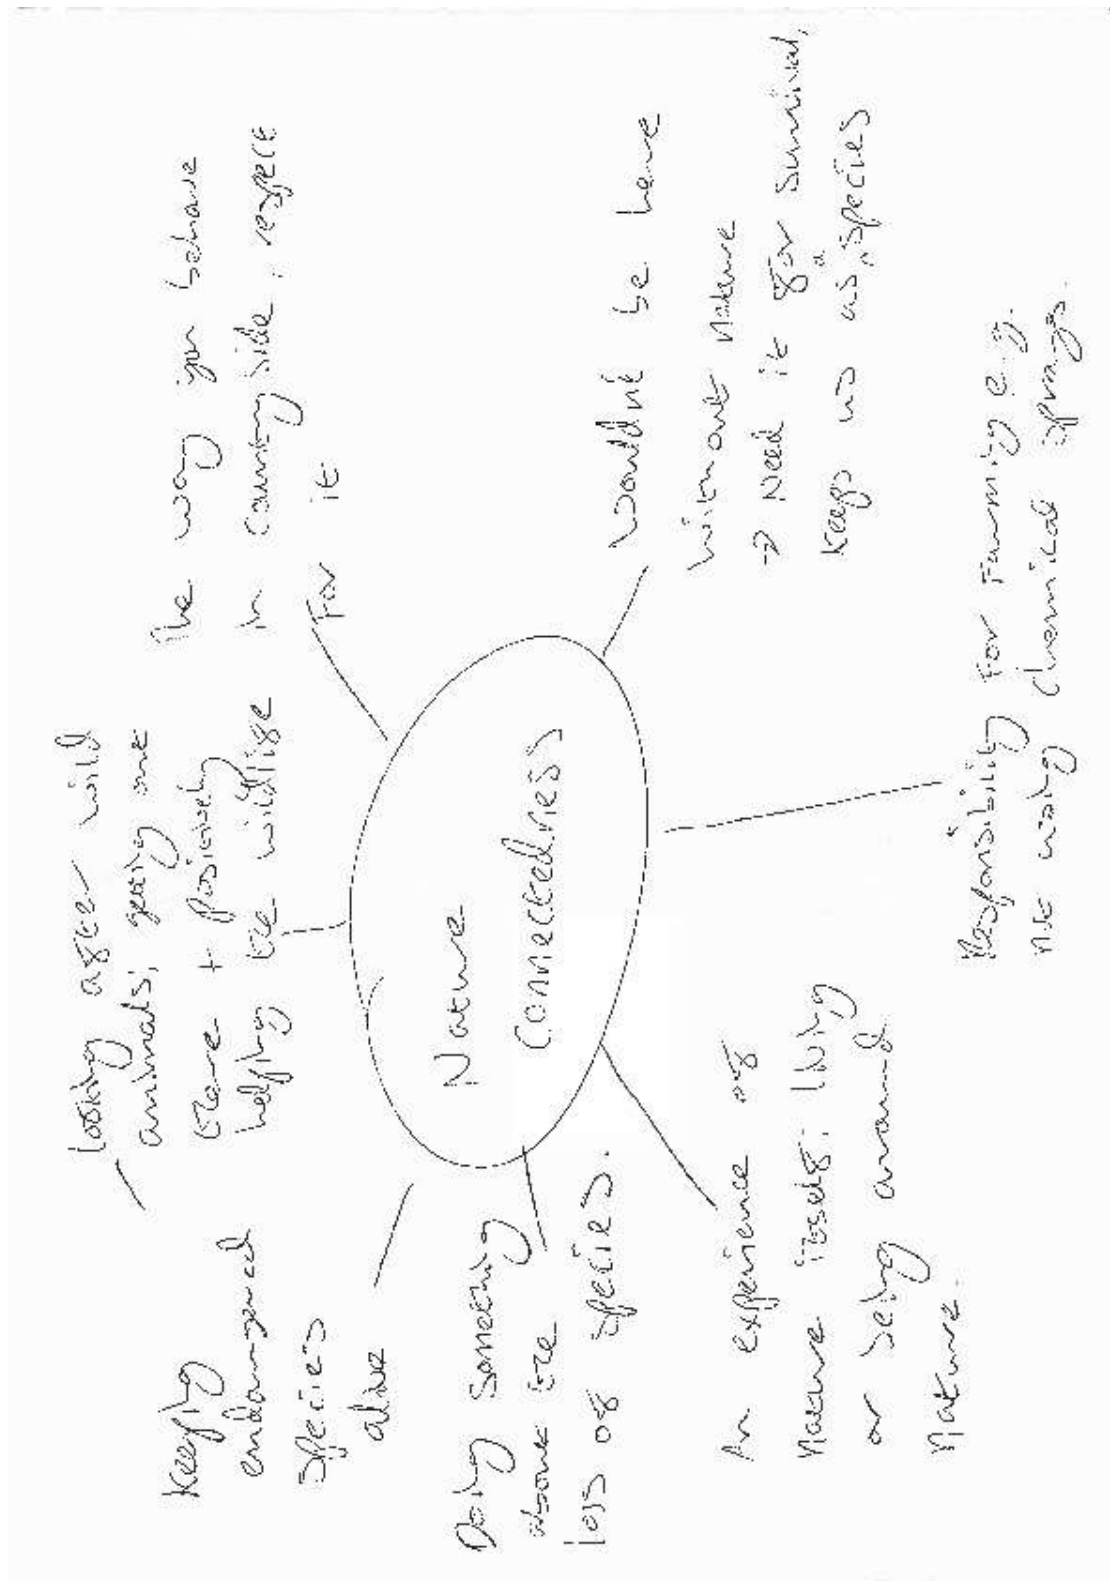 Nature
Connectedness
Keeping
endangered
species
alive
Looking after wild
animals; getting out
there + positively
helping the wildlife
The way you behave
in countryside, respect
for it
Wouldn't be here
without nature
→ Need it for survival,
keeps us as a species
Responsibility for farming e.g.
not using chemical sprays.
An experience of
nature itself: living
or being around
nature.
Doing something
about the
loss of species.